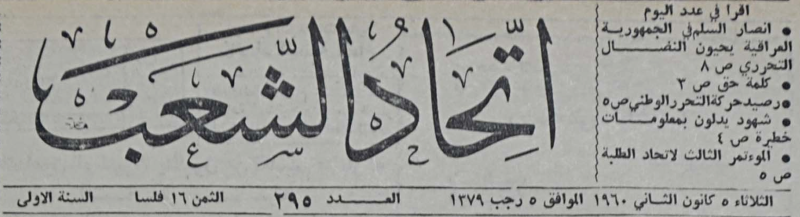 اقرأ في عدد اليوم
• انصار السلم في الجمهورية
العراقية يحيون النضال
التحرري ص ٨
• كلمة حق ص ٣
• رصيد حركة التحرر الوطني ص ٥
• شهود يدلون بمعلومات
خطيرة ص ٤
• الموءتمر الثالث لاتحاد الطلبة
ص ٥
اتحاد الشعب
الثلاثاء ٥ كانون الثاني ١٩٦٠ الموافق ٥ رجب ١٣٧٩ العدد ٢٩٥ الثمن ١٦ فلسا السنة الاولى